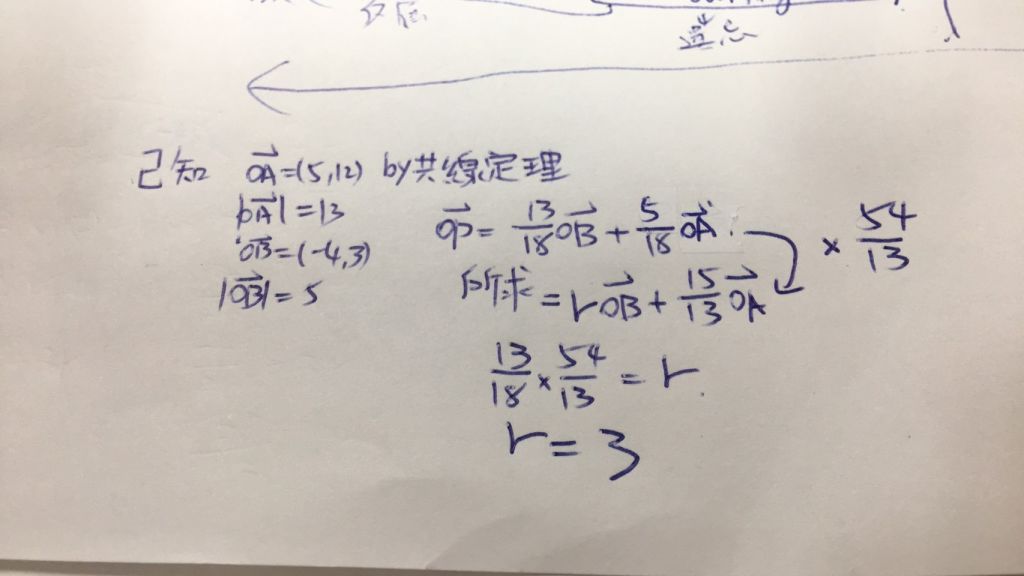 遺忘
已知 OA=(5,12) by共線定理
|OA|=13
OB=(-4,3)
|OB|=5
OP= 13/18 OB + 5/18 OA
× 54/13
所求 = rOB + 15/13 OA
13/18 × 54/13 = r
r=3